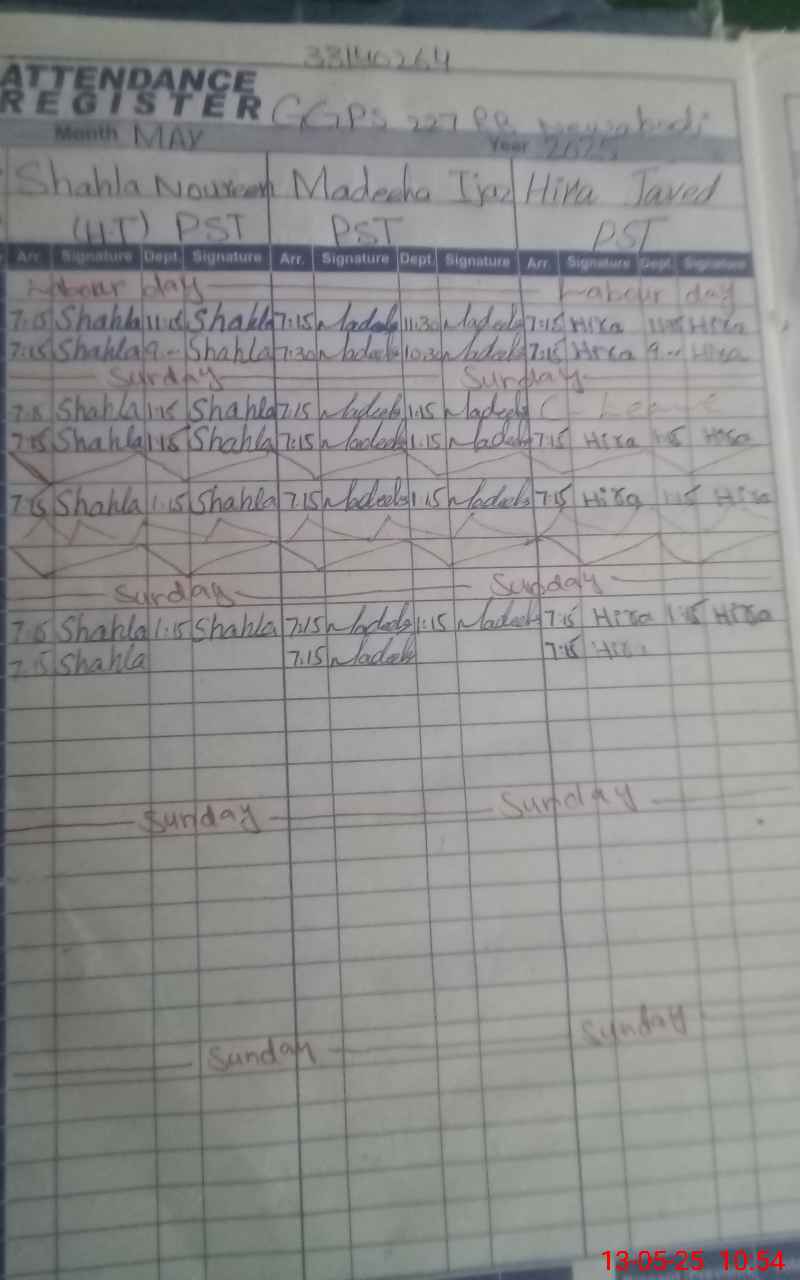 33140264
ATTENDANCE
REGISTER GGPS 227 RB
Month MAY Year 2025
Shahla Noureen Madeeha Ijaz Hira Javed
(H.T) PST PST PST
Arr. Signature Dept. Signature Arr. Signature Dept. Signature Arr. Signature Dept. Signature
Labour day Labour day
7:15 Shahla 11:15 Shahla 7:15 Madeeh 11:30 Madeeh 7:15 Hira Hira
7:15 Shahla 9 -- Shahla 7:30 Madeeh 10:30 Madeeh 7:15 Hira 9 -- Hira
Sunday Sunday
Shahla 1:15 Shahla 7:15 Madeeh 1:15 Madeeh C - Leave
7:15 Shahla 1:15 Shahla 7:15 Madeeh 1:15 Madeeh 7:15 Hira 1:15 Hira
7:15 Shahla 1:15 Shahla 7:15 Madeeh 1:15 Madeeh 7:15 Hira 1:15 Hira
Sunday Sunday
7:15 Shahla 1:15 Shahla 7:15 Madeeh 1:15 Madeeh 7:15 Hira 1:15 Hira
7:15 Shahla 7:15 Madeeh 7:15 Hira
Sunday Sunday
Sunday Sunday
13-05-25 10:54